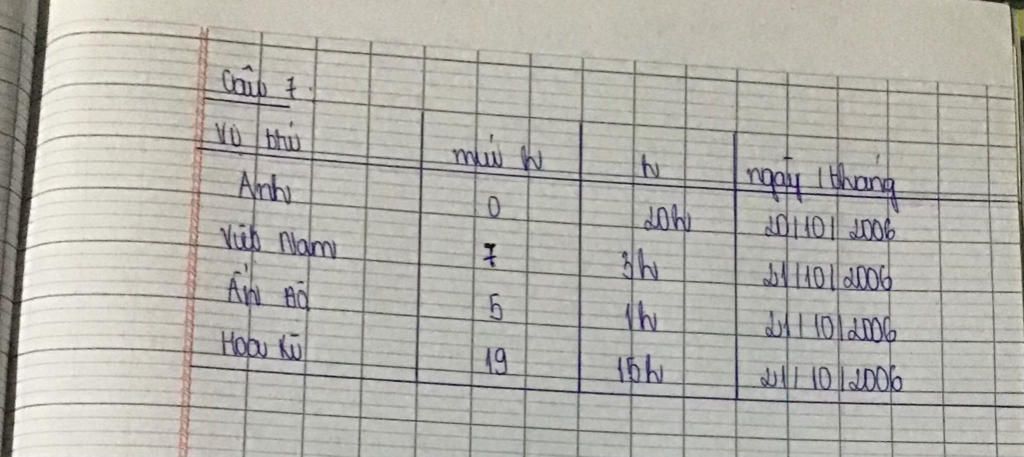 Câu 7.
Vị trí múi h h ngày / tháng
Anh 0 20h 20/10/2006
Việt Nam 7 3h 21/10/2006
Ấn Độ 5 1h 21/10/2006
Hoa Kì 19 15h 21/10/2006